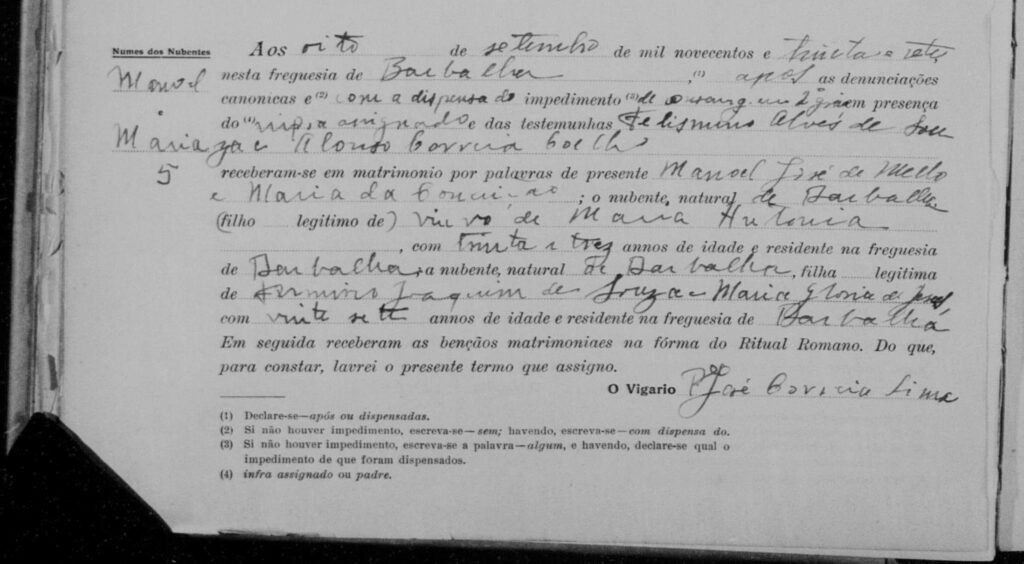 Nomes dos Nubentes
Manoel
e
Maria
5
Aos oito de setembro de mil novecentos e trinta e sete
nesta freguesia de Barbalha ,(1) após as denunciações
canonicas e (2) com a dispensa do impedimento (3) de consang. em 2º gráo em presença
do (4) infra assignado e das testemunhas Felismino Alves de Sou
za e Alonso Correia Coelho
receberam-se em matrimonio por palavras de presente Manoel José de Mello
e Maria da Conceição ; o nubente, natural de Barbalha
(filho legitimo de) viuvo de Maria Antonia
, com trinta e trez annos de idade e residente na freguesia
de Barbalha, a nubente, natural de Barbalha, filha legitima
de Firmino Joaquim de Souza e Maria Gloria de Jesus
com vinte sete annos de idade e residente na freguesia de Barbalha
Em seguida receberam as bençãos matrimoniaes na fórma do Ritual Romano. Do que,
para constar, lavrei o presente termo que assigno.
O Vigario Pe José Correia Lima
(1) Declare-se—após ou dispensadas.
(2) Si não houver impedimento, escreva-se—sem; havendo, escreva-se—com dispensa do.
(3) Si não houver impedimento, escreva-se a palavra—algum, e havendo, declare-se qual o
impedimento de que foram dispensados.
(4) infra assignado ou padre.